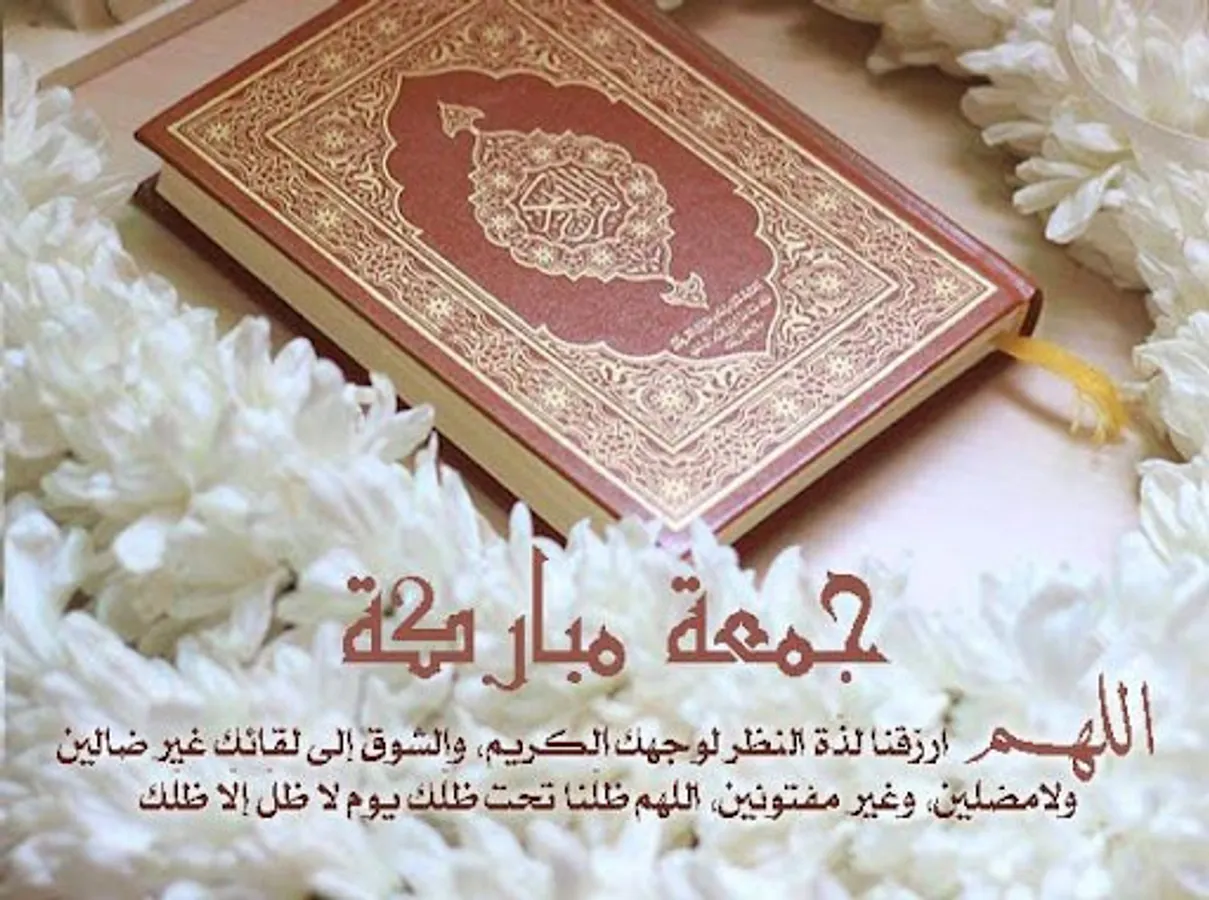 جمعة مباركة
اللهم ارزقنا لذة النظر لوجهك الكريم، والشوق إلى لقائك غير ضالين
ولامضلين، وغير مفتونين، اللهم ظلّنا تحت ظلّك يوم لا ظلّ إلا ظلّك